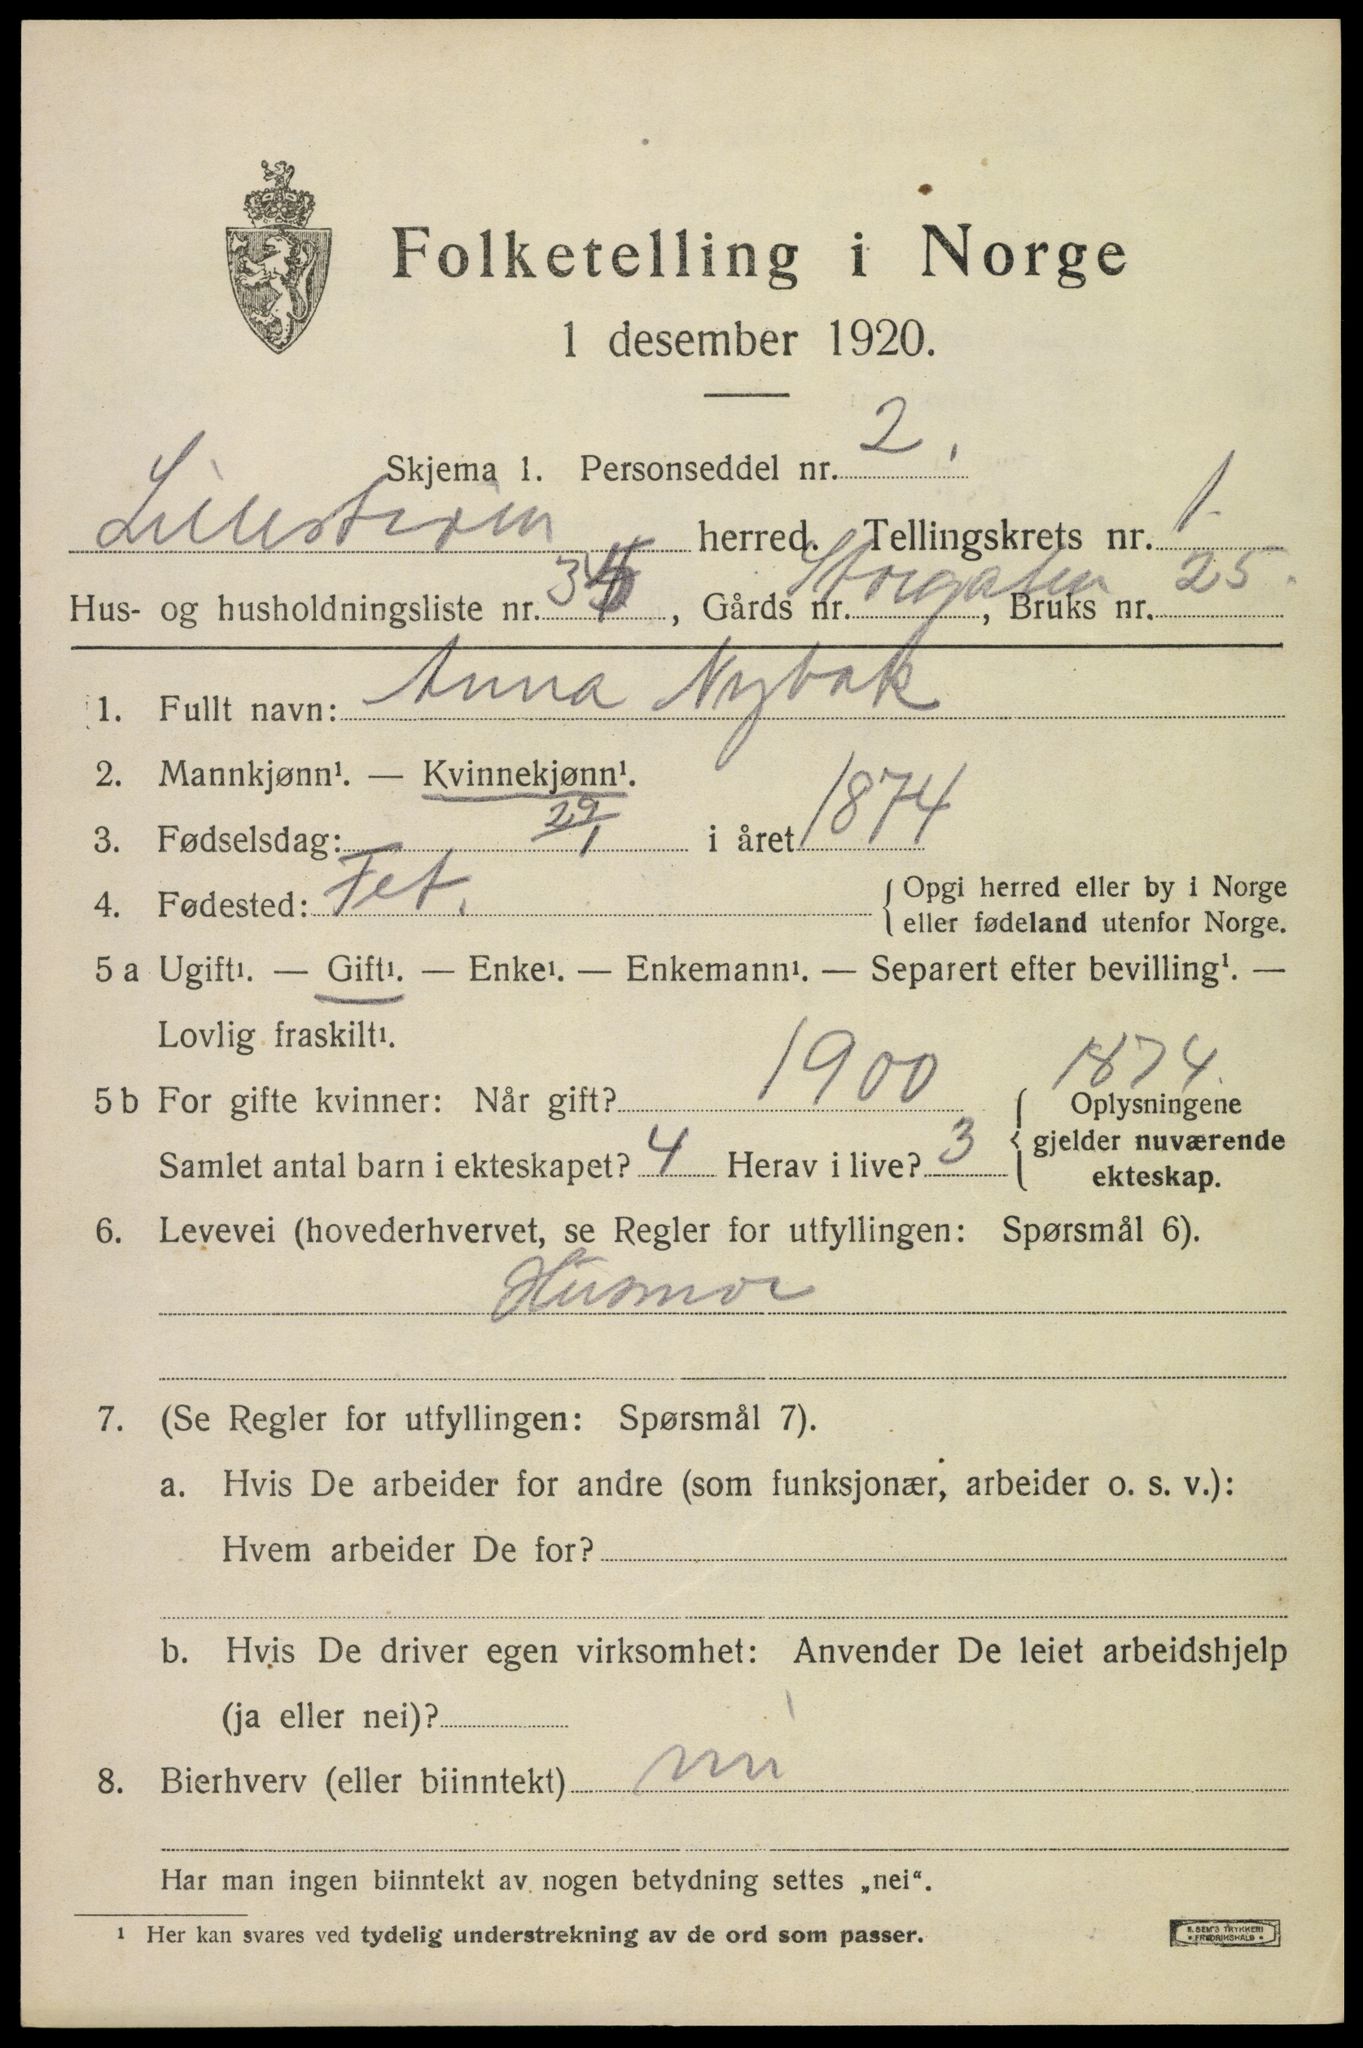 Folketelling i Norge
1 desember 1920.
Skjema 1. Personseddel nr. 2.
Lillestrøm herred. Tellingskrets nr. 1.
Hus- og husholdningsliste nr. , Gårds nr. Storgaten, Bruks nr. 25.
1. Fullt navn: Anna Nybak
2. Mannkjønn¹. — Kvinnekjønn¹.
3. Fødselsdag: 29/1 i året 1874
4. Fødested: Fet. { Opgi herred eller by i Norge
eller fødeland utenfor Norge.
5 a Ugift¹. — Gift¹. — Enke¹. — Enkemann¹. — Separert efter bevilling¹. —
Lovlig fraskilt¹.
1874.
5 b For gifte kvinner: Når gift? 1900 { Oplysningene
gjelder nuværende
Samlet antal barn i ekteskapet? 4 Herav i live? 3 ekteskap.
6. Levevei (hovederhvervet, se Regler for utfyllingen: Spørsmål 6).
Husmor
7. (Se Regler for utfyllingen: Spørsmål 7).
a. Hvis De arbeider for andre (som funksjonær, arbeider o. s. v.):
Hvem arbeider De for?
b. Hvis De driver egen virksomhet: Anvender De leiet arbeidshjelp
(ja eller nei)?
8. Bierhverv (eller biinntekt) nei
Har man ingen biinntekt av nogen betydning settes „nei“.
¹ Her kan svares ved tydelig understrekning av de ord som passer.
E. SEM'S TRYKKERI
* FREDRIKSHALD *